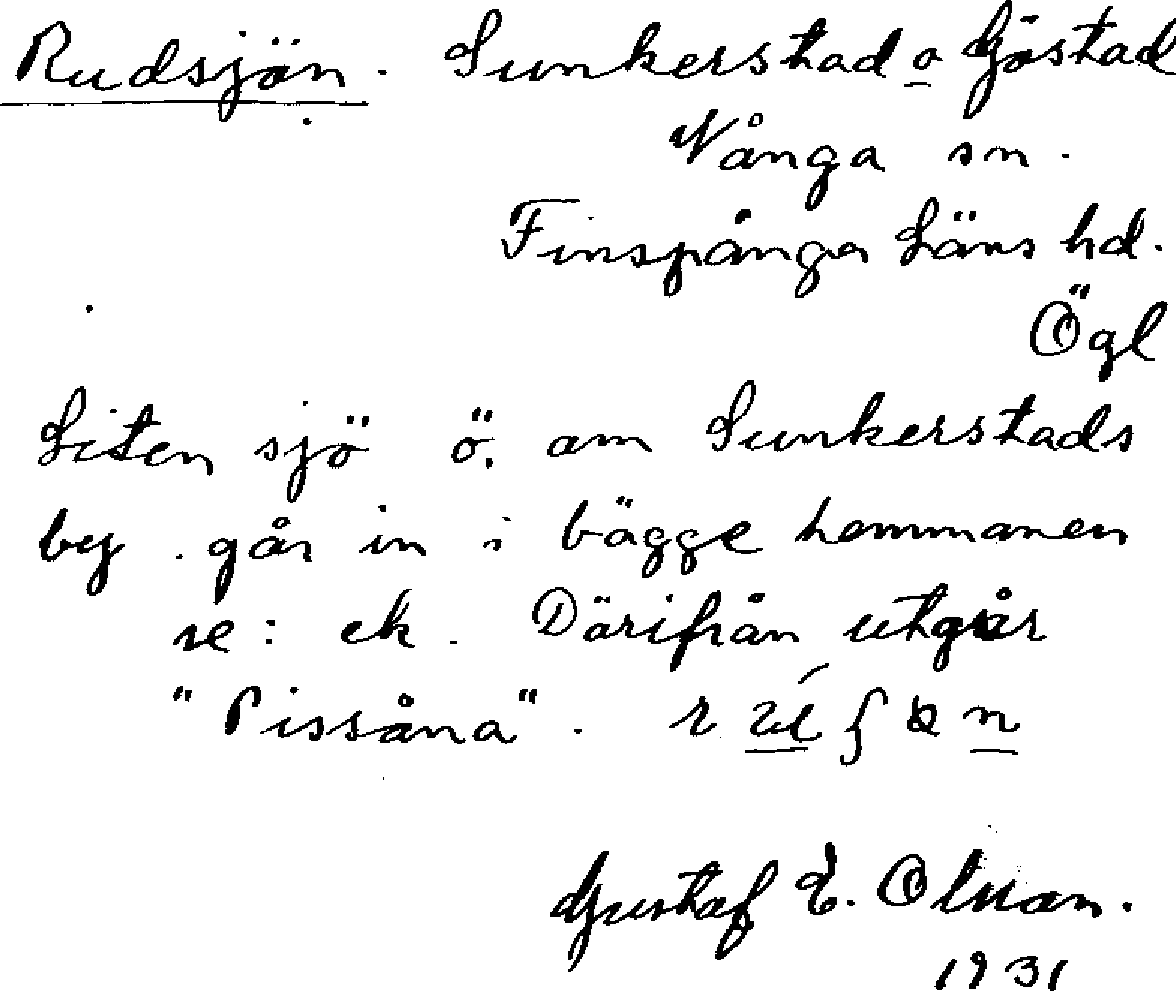 Rudsjön. Sunkerstad o Göstad
Vånga sn.
Finspånga Läns hd.
Ögl
Liten sjö ö. om Sunkerstads
by. går in i bägge hemmanen
se: ek. Därifrån utgår
"Pissåna". r
Gustaf E. Olsson.
1931